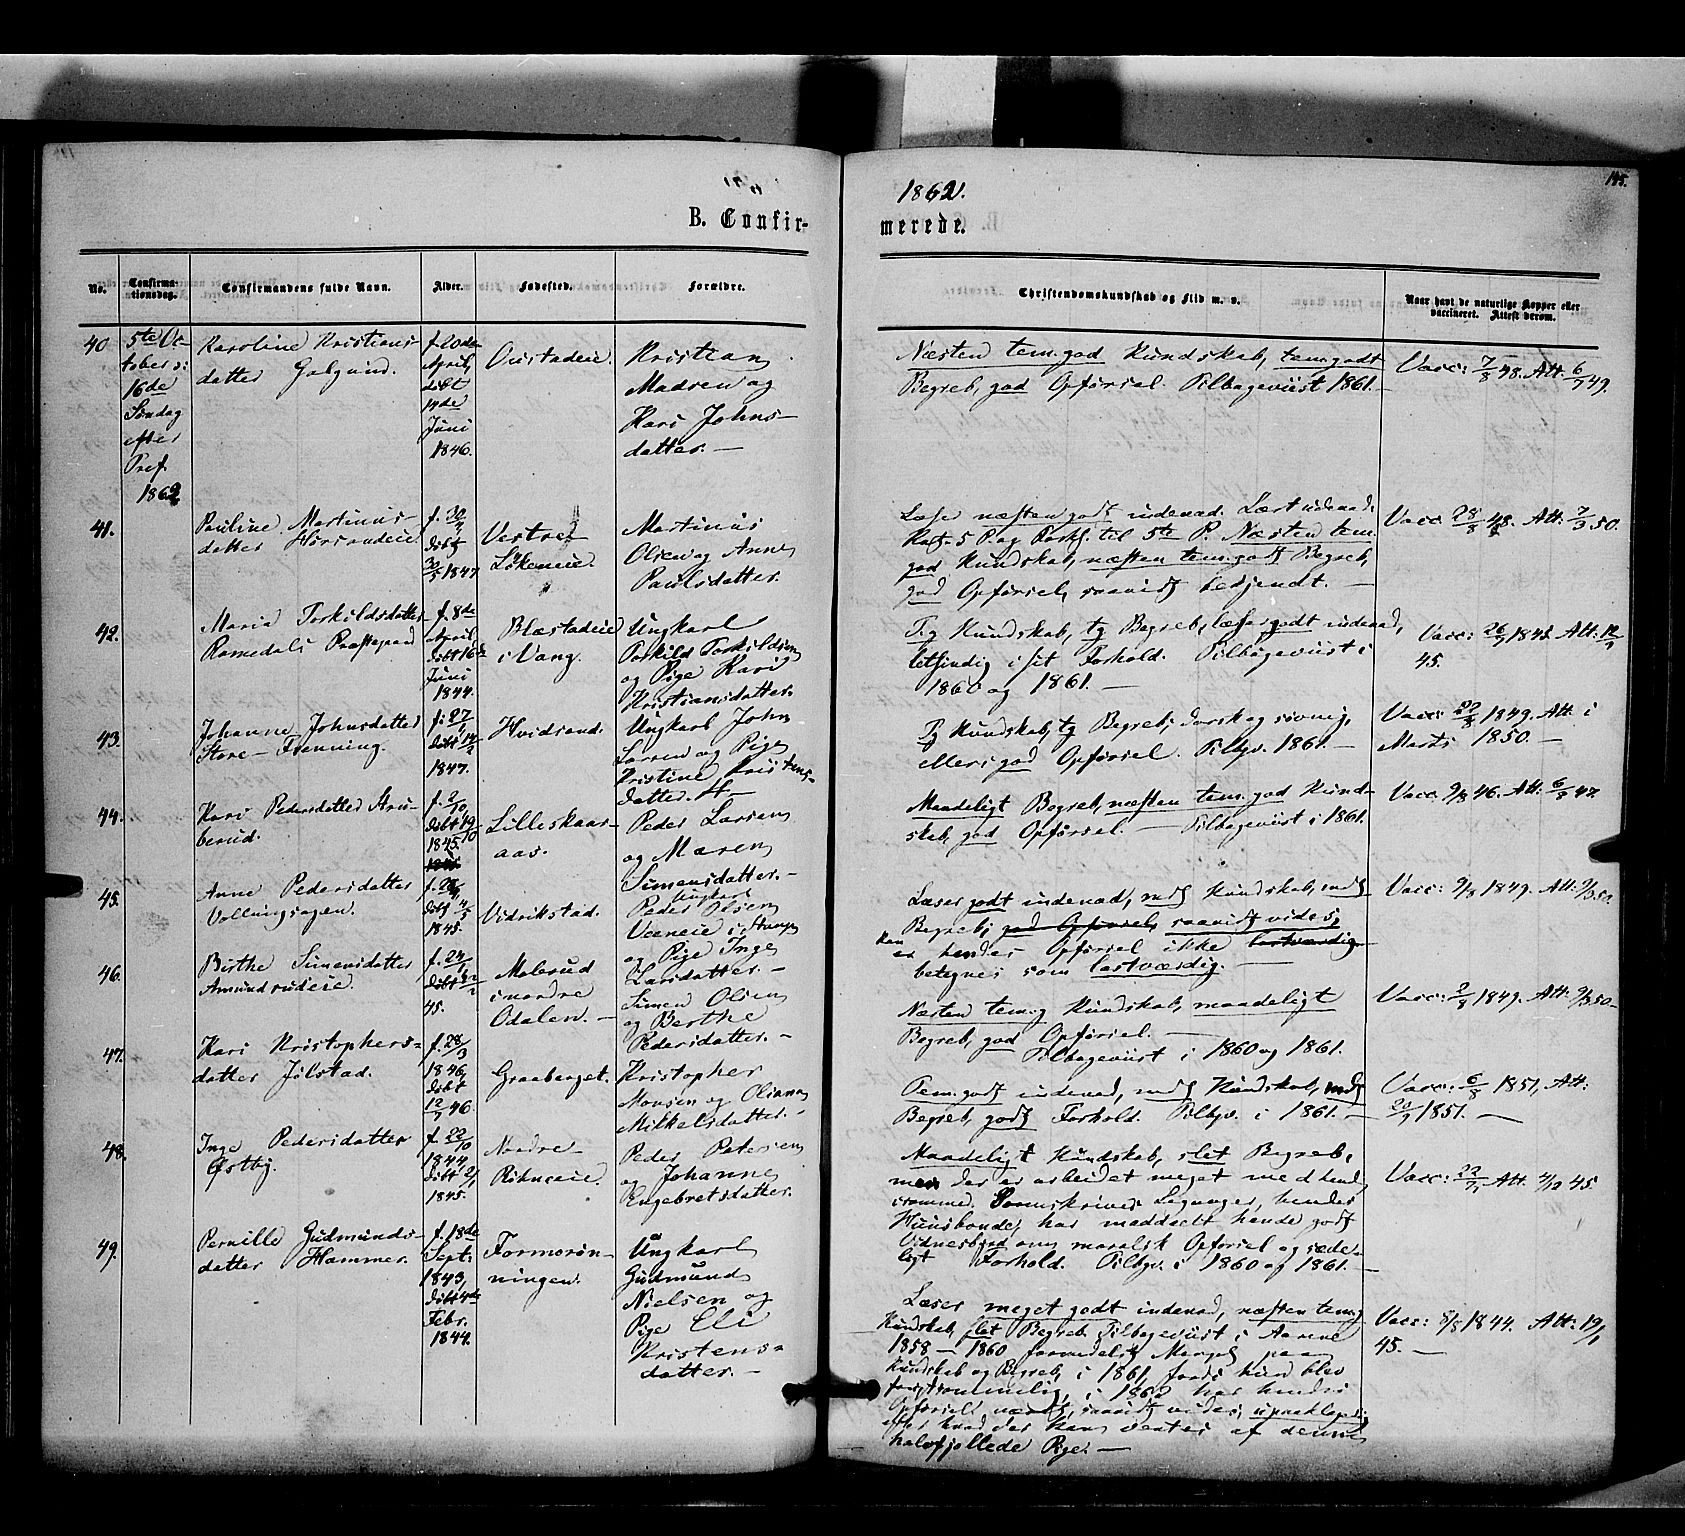 1862.
145.
B. Confir-
merede.
No.
Confirma-
tionsdag.
Confirmandens fulde Navn.
Alder.
Fødested.
Forældre.
Christendomskundskab og Flid m. v.
Naar havt de naturlige Kopper eller
vaccineret. Attest derom.
40
5te Oc-
tober ɔ:
16de
Søndag
efter
Pref.
1862
Karoline Kristians-
datter Galgund.
f. 20de
April,
døbt
14de
Juni
1846.
Oustadeie.
Kristian
Madsen og
Kari Johns-
datter. —
Næsten tem. god Kundskab, tem. godt
Begreb, god Opførsel. Tilbageviist 1861. —
Vacc: 7/8 48. Att: 6/7 49.
41.
Pauline Martinus-
datter
f. 30/4
døbt
30/5 1847
Vestre
Løkeneie.
Martinus
Olsen og Anne
Paulsdatter.
Læser næsten godt indenad. Lært udenad
5 P. og Forkl. til 5te P. Næsten tem.
god Kundskab, næsten tem. godt Begreb,
god Opførsel, saavidt bekjendt. —
Vacc: 28/8 48. Att: 7/9 50.
42.
Maria Torkildsdatter
Romedals Præstegaard
f. 8de
April
døbt 16de
Juni
1844.
Blæstadeie
i Vang.
Ungkarl
Torkild Torkildsen
og Pige Kari
Kristiansdatter.
T. g. Kundskab, tg Begreb, læser godt indenad,
letsindig i sit Forhold. Tilbageviist i
1860 og 1861. —
Vacc: 26/7 1845 Att: 12/9
45.
43.
Johanne Johnsdatter
Store-Frenning.
f. 27/1
døbt 14/2
1847.
Hvidsand.
Ungkarl John
Larsen og Pige
Kristine Kristens-
datter. —
Tg Kundskab, tg Begreb, dorsk og søvnig,
ellers god Opførsel. Tilbgv. 1861. —
Vacc: 22/8 1849. Att: i
Marts 1850. —
44.
Kari Pedersdatter Stru-
berud.
f. 2/10
døbt 19/10
1845.
Lilleskaar-
aas.
Peder Larsen
og Maren
Simensdatter. —
Maadeligt Begreb, næsten tem. god Kund-
skab, god Opførsel. — Tilbageviist i 1861.
Vacc. 9/8 46. Att: 6/9 47.
45.
Anne Pedersdatter
Vollungsagen.
døbt 4/5
1845.
Vidrikstad.
Ungkarl
Peder Olsen
Væneie i Stange
og Pige Inge
Larsdatter. —
Læser godt indenad, mdl Kundskab, mdl
Begreb, god Opførsel, saavidt vides,
kan
er hendes Opførsel ikke lastværdig
betegnes som lastværdig. —
Vacc: 9/8 1849. Att: 9/3 50
46.
Birthe Simensdatter
Amundrudeie.
f. 24/1
døbt
45.
Malerud
i nordre
Odalen. —
Simen Olsen
og Berthe
Pedersdatter. —
Næsten tem. g Kundskab, maadeligt
Begreb, god Opførsel. —
Tilbageviist i 1860 og 1861.
Vacc: 2/8 1849. Att: 9/3 50 —
47.
Kari Kristophers-
datter Jølstad.
f. 28/3
1846,
døbt
12/7 46.
Graaberget.
Kristopher
Monsen og Oliana
Mikkelsdatter. —
Tem. godt indenad, mdl Kundskab, mdl
Begreb, godt Forhold. Tilbgv. i 1861. —
Vacc: 6/8 1851, Att:
20/9 1851. —
48.
Inge Pedersdatter
Østby.
f. 22/10
1844,
døbt 2/1
1845.
Nordre
Røhneeie.
Peder Petersen
og Johanne
Engebretsdatter.
Maadeligt Kundskab, slet Begreb,
men der er arbeidet meget med hende,
hendes
Huusbonde, har meddeelt hende godt
Vidnesbyrd om moralsk Opførsel og sæde-
ligt Forhold. Tilbgv. i 1860 og 1861. —
Vacc: 22/7, Att. 4/12 45.
49.
Pernille Gudmunds-
datter Hammer.
f. 18de
Sept.
1843,
døbt 4de
Febr.
1844.
Formorøn-
ningen.
Ungkarl
Gudmund
Nielsen og
Pige Eli
Kristens-
datter. —
Læser meget godt indenad, næsten tem. g
Kundskab, slet Begreb. Tilbageviist i Aarene
1858 — 1860 formedelst Mangel paa
Kundskab og Begreb, i 1861, fordi hun blev
i 1862 har hendes
Opførsel været, saavidt vides, upaaklagelig
efter hvad der kan ventes af denne
halvfjollede Pige. —
Vacc: 5/8 1844. Att: 19/9
45. —